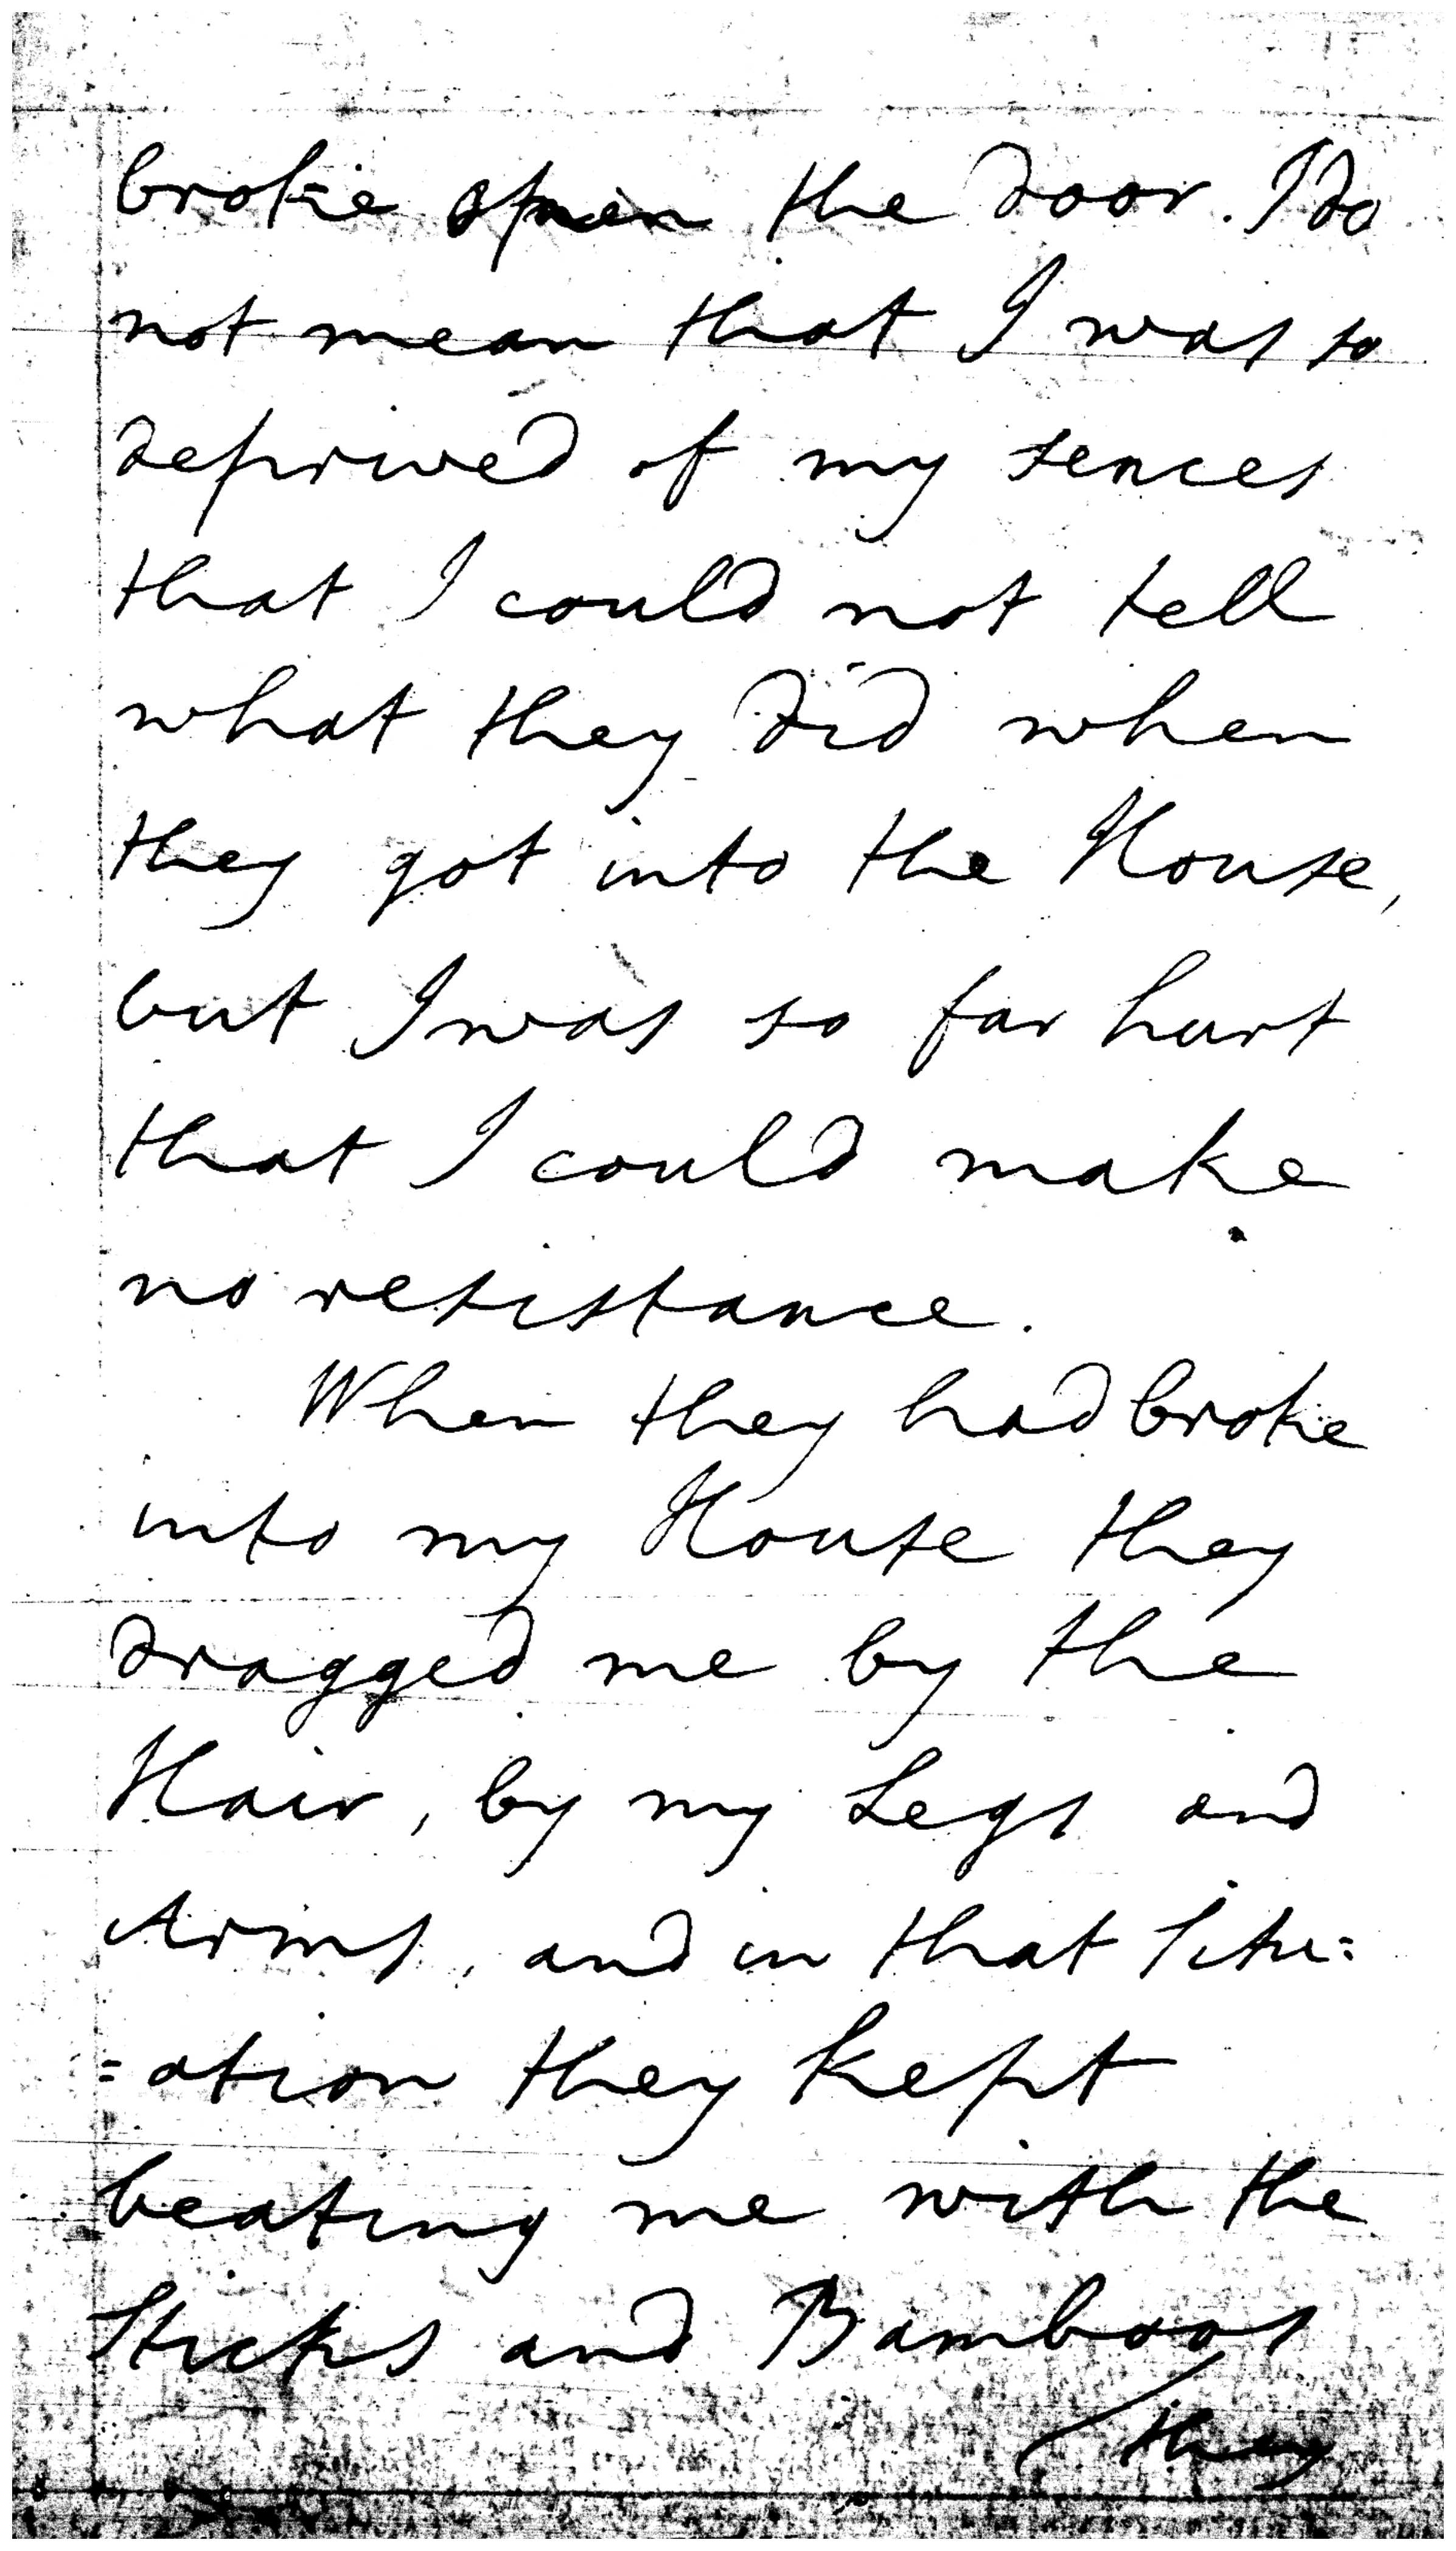 broke open the door. I do
not mean that I was so
deprived of my sences
that I could not tell
what they did when
they got into the House,
but I was so far hurt
that I could make
no resistance.
When they had broke
into my House they
dragged me by the
Hair, by my Legs and
Arms, and in that Situ=
=ation they kept
beating me with the
Sticks and Bamboos
they